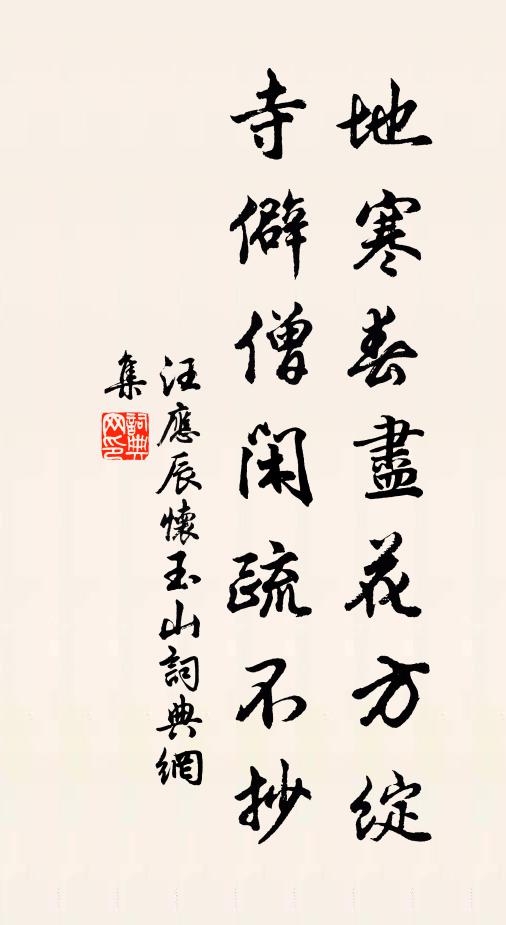 地寒春盡花方綻
寺僻僧閑疏不抄
汪應辰懷玉山詞典網
集
詞典
网印